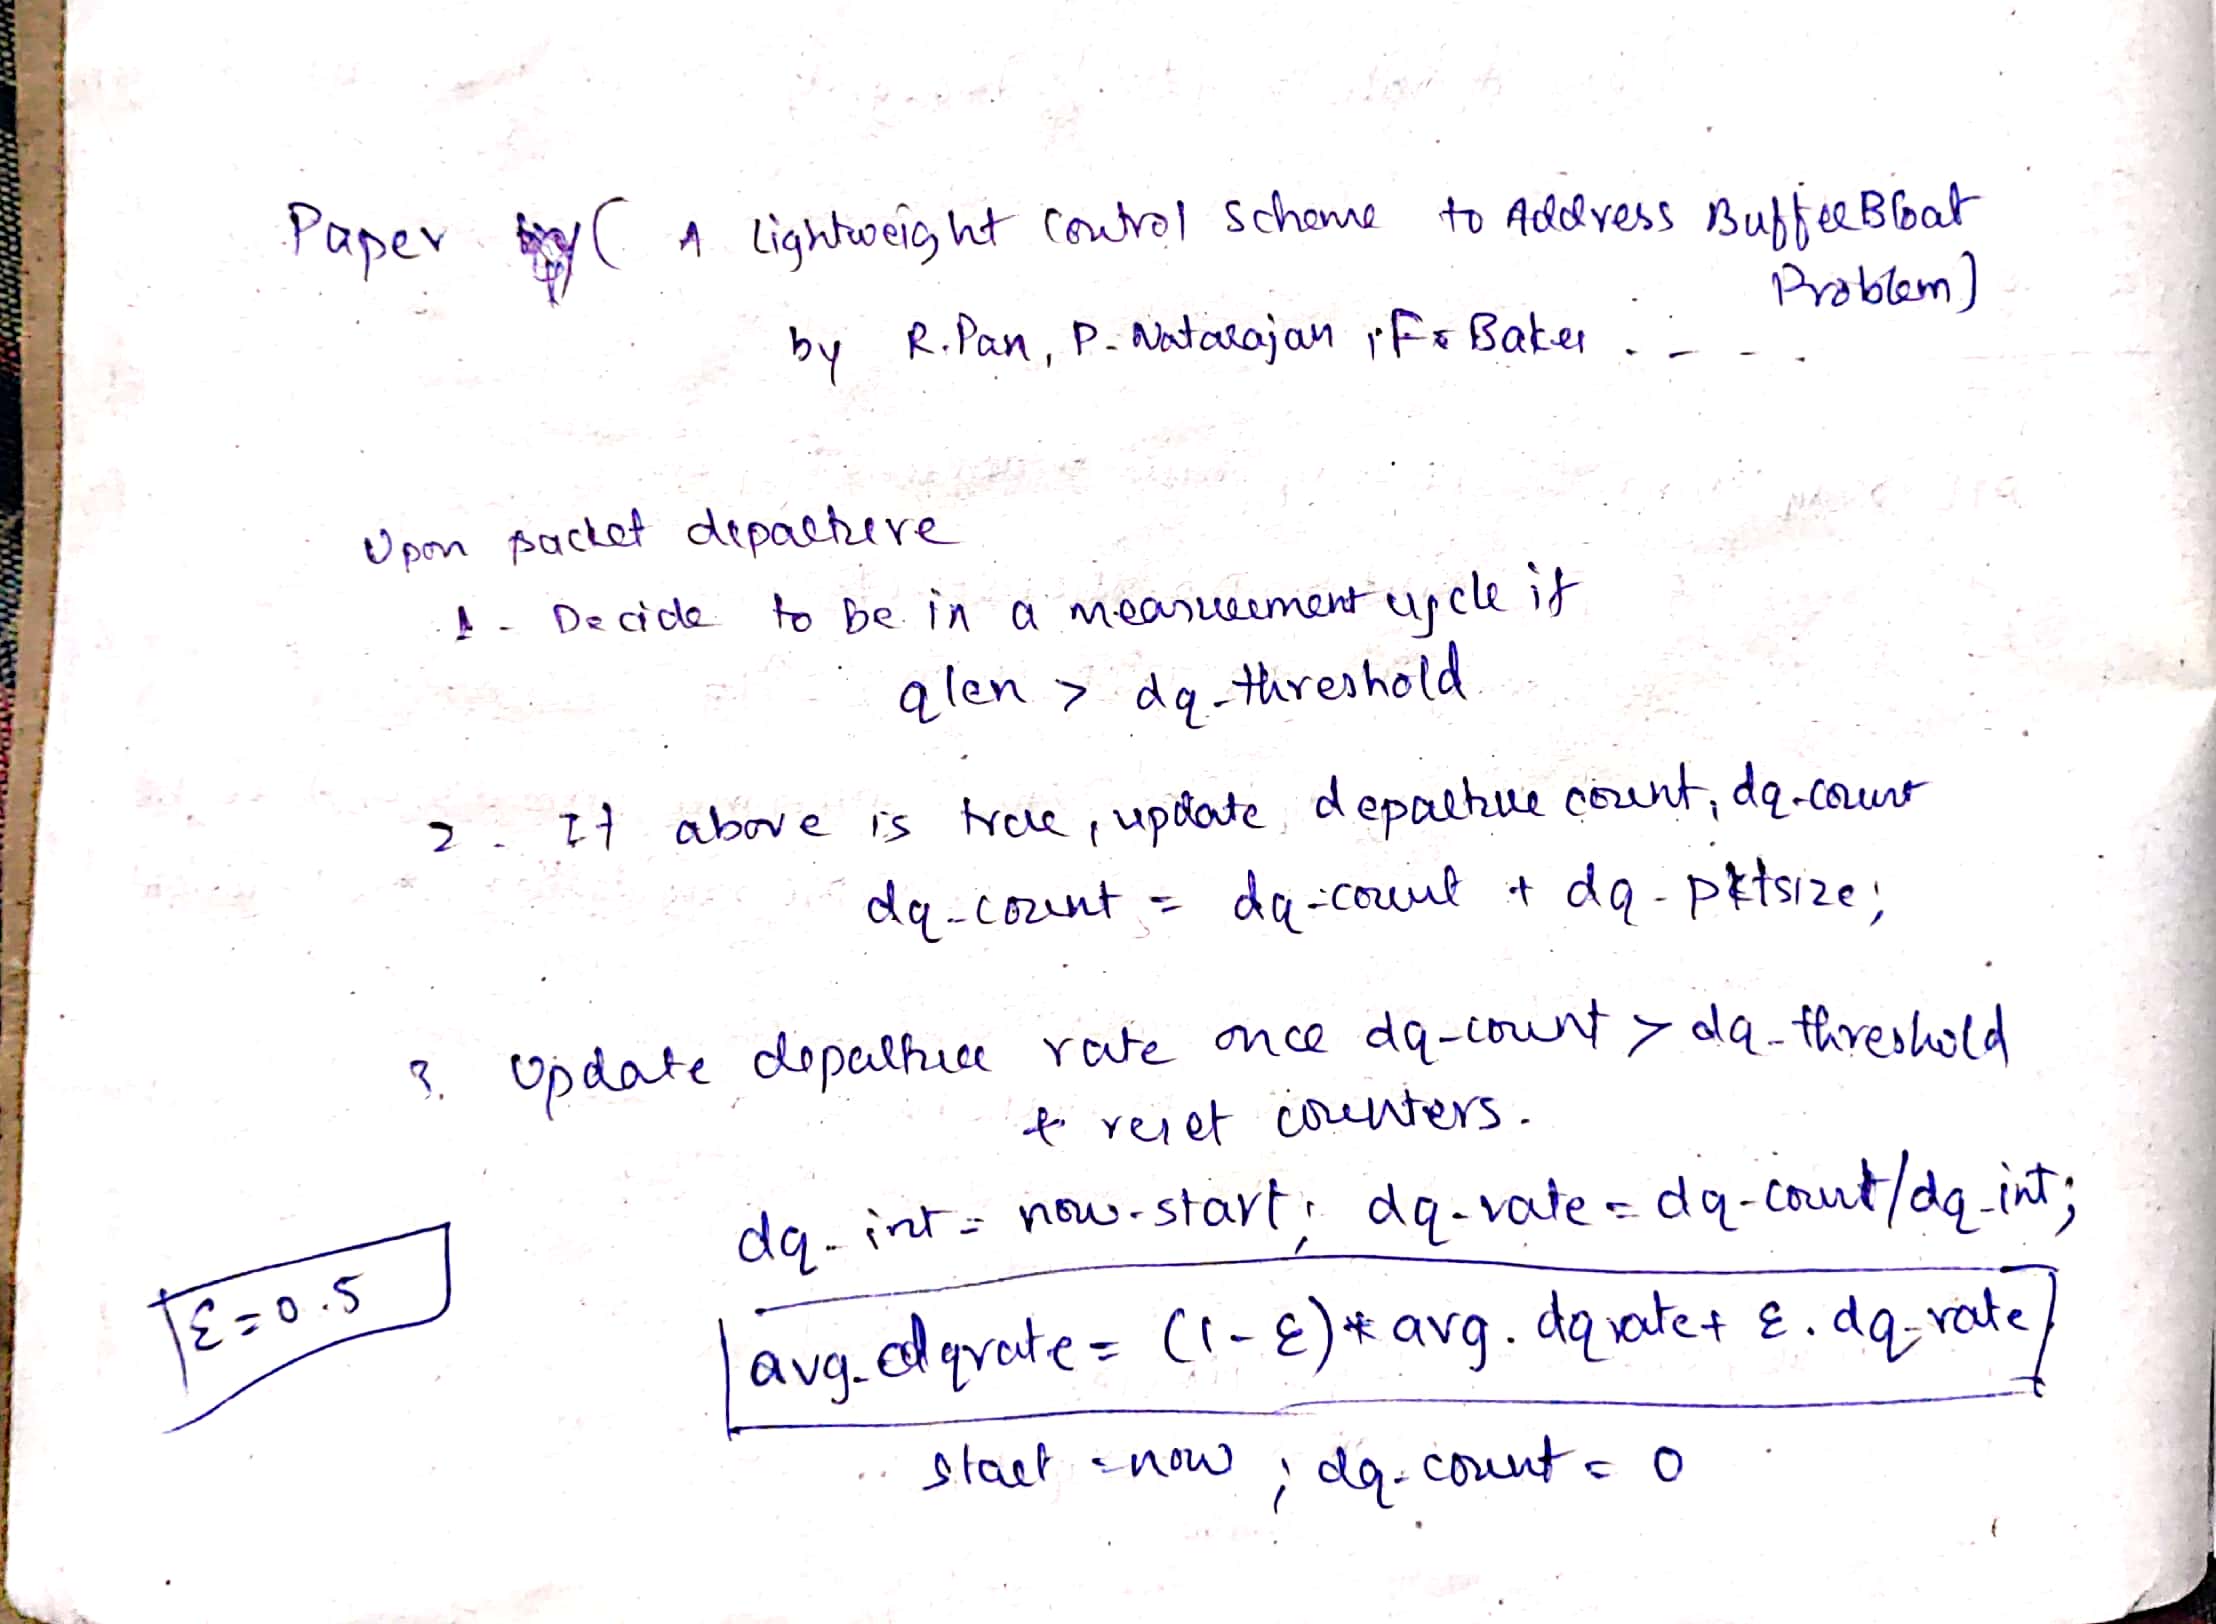 Paper ( A Lightweight Control Scheme to Address BufferBloat
Problem)
by R. Pan, P. Natarajan, F. Baker . - - - .
Upon packet departure
1. Decide to be in a measurement cycle if
qlen > dq_threshold
2. If above is true, update departure count, dq-count
dq_count = dq-count + dq_pktsize;
3. Update departure rate once dq-count > dq_threshold
& reset counters.
dq_int = now-start; dq-rate = dq-count/dq_int;
ε=0.5
avg_dqrate = (1-ε)* avg. dqrate + ε. dq_rate
start = now ; dq_count = 0